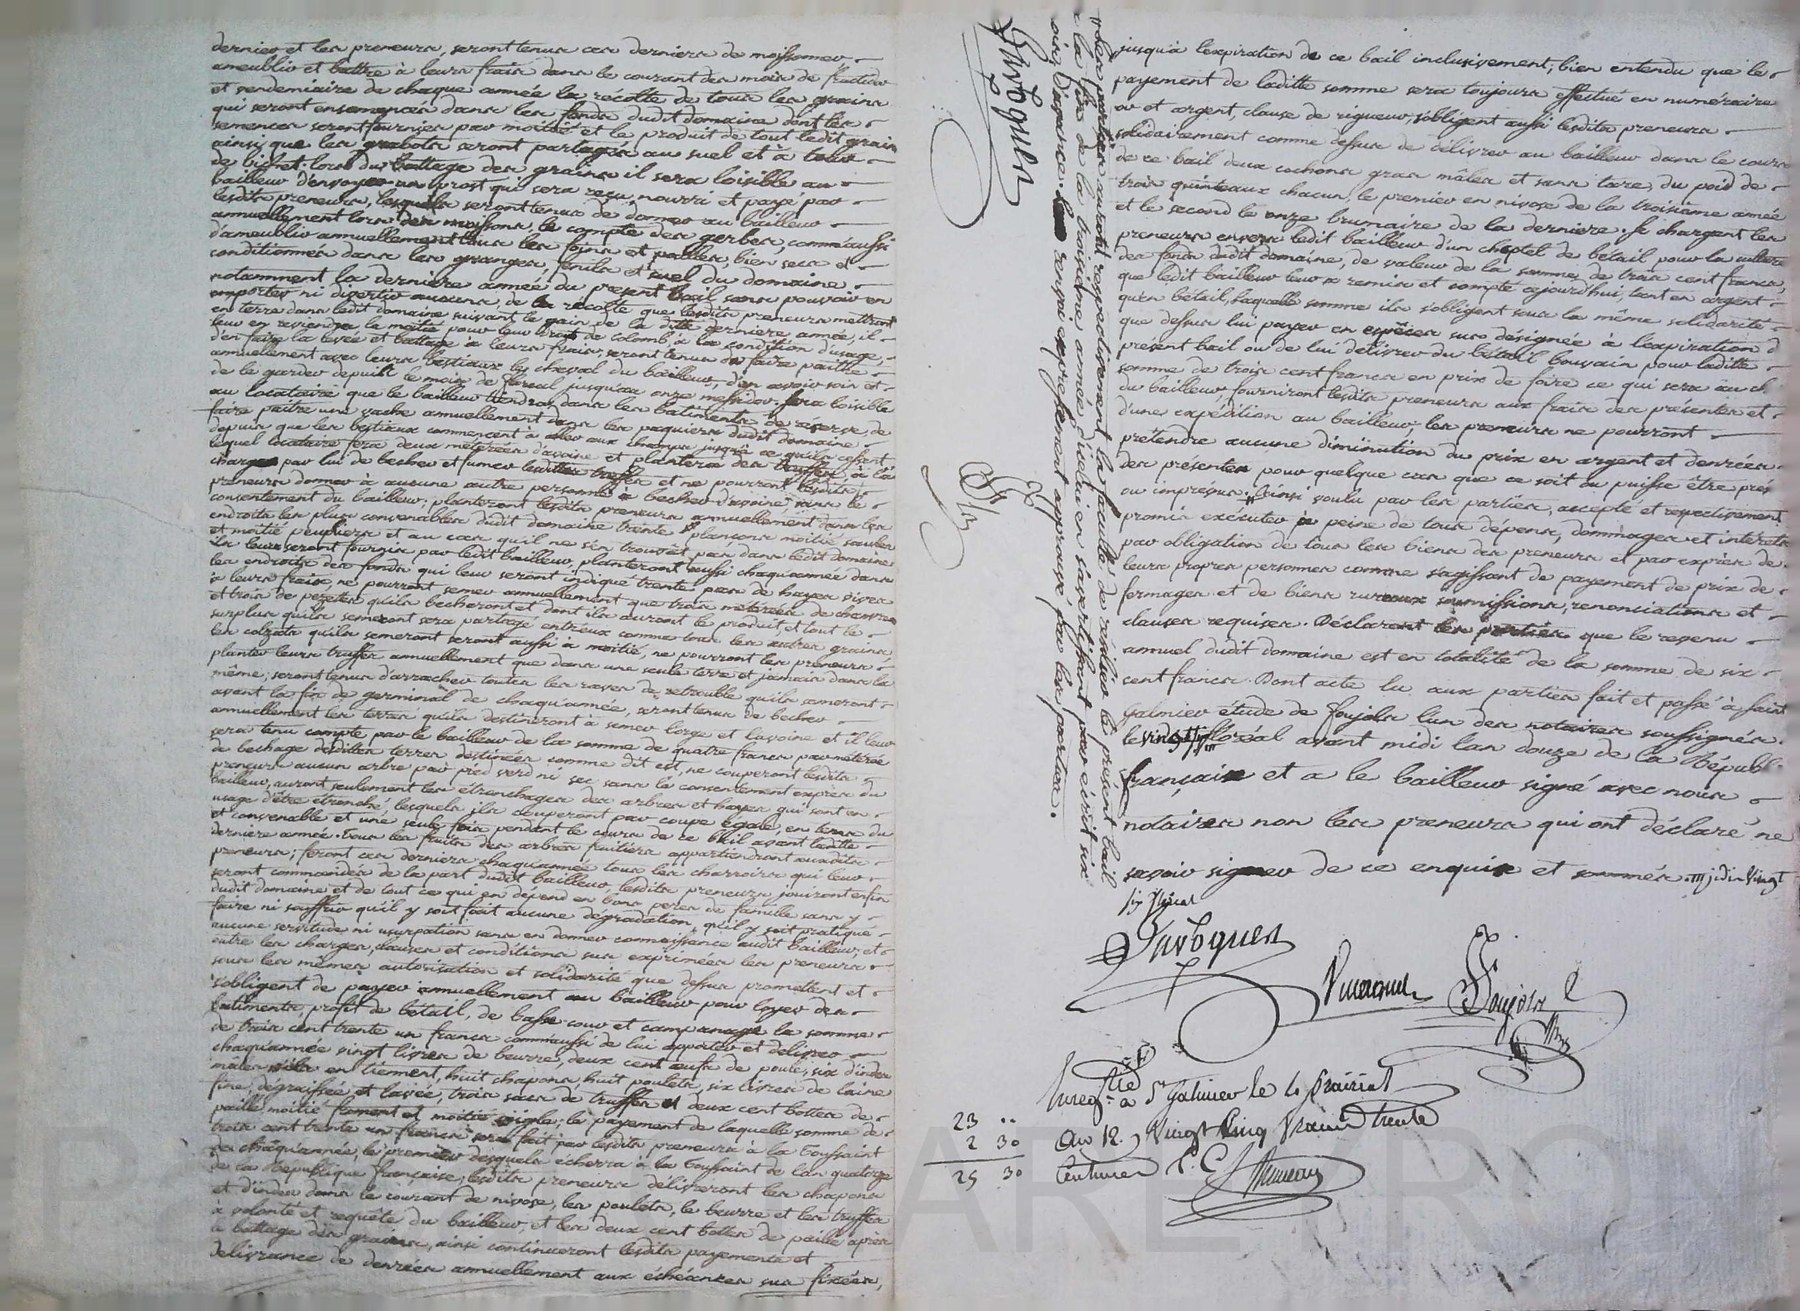 dernier et les preneurs, seront tenus ces derniers de moissonner
ameublir et battre à leurs frais dans le courant des mois de fructidor
et vendemiaire de chaque année la récolte de tous les grains
qui seront ensemencés dans les fonds dudit domaine dont les
semences seront fournies par moitié et le produit de tout ledit grain
ainsi que les grabots seront partagés au suel et à tour
de bichet. lors du battage des grains il sera loisible au
bailleur d'envoyer un prost qui sera reçu, nourri et payé par
lesdits preneurs, lesquels seront tenus de donner au bailleur
annuellement lors des moissons, le compte des gerbes, comme aussi
d'ameublir annuellement tous les foins et pailles, bien secs et
conditionnés dans les granges, fenils et suel du domaine
notamment la dernière année du présent bail sans pouvoir en
emporter ni divertir aucuns, de la récolte que lesdits preneurs mettront
en terre dans ledit domaine suivant le gain de la ditte dernière année, il
leur en reviendra la moitié pour leur droit de colomb, à la condition d'usage,
d'en faire la levée et battage à leurs frais, seront tenus de faire paitre
annuellement avec leurs bestiaux le cheval du bailleur, d'en avoir soin et
de le garder depuis le mois de floreal jusqu'au onze messidor. sera loisible
au locataire que le bailleur tiendra dans les batiments de réserve, de
faire paitre une vache annuellement dans les paquiers dudit domaine
depuis que les bestiaux commencent à aller aux champs jusqu'à ce qu'ils cessent
lequel locataire fera deux métérées d'avoine et plantera des truffes, à la
charge par lui de becher et fumer lesdittes truffes et ne pourront lesdits
preneurs donner à aucune autre personne à becher d'avoine sans le
consentement du bailleur; planteront lesdits preneurs annuellement dans les
endroits les plus convenables dudit domaine trente plançons moitié saules
et moitié peupliers et au cas qu'il ne s'en trouvât pas dans ledit domaine
ils leur seront fournis par ledit bailleur, planteront aussi chaqu'année dans
les endroits des fonds qui leur seront indiqué trente pas de hayes vives
à leurs frais, ne pourront semer annuellement que trois métérées de chanvre
et trois de pezettes qu'ils becheront et dont ils auront le produit, et tout le
surplus qu'ils semeront sera partagé entr'eux comme tous les autres grains
les colzats qu'ils semeront seront aussi à moitié, ne pourront les preneurs
planter leurs truffes annuellement que dans une seule terre et jamais dans la
même; seront tenus d'arracher toutes les raves de retrouble qu'ils semeront
avant la fin de germinal de chaqu'année, seront tenus de becher
annuellement les terres qu'ils destineront à semer l'orge et l'avoine et il leur
sera tenu compte par le bailleur de la somme de quatre francs par métérée
de bechage desdittes terres destinées comme dit est, ne couperont lesdits
preneurs aucun arbre par pied verd ni sec sans le consentement exprès du
bailleur, auront seulement les étranchages des arbres et hayes qui sont en
usage d'être étranché lesquels ils couperont par coupe égale, en tems du
et convenable et une seule fois pendant le cours de ce bail avant laditte
dernière année. Tous les fruits des arbres fruitiers appartiendront auxdits
preneurs; feront ces derniers chaqu'année tous les charrois qui leur
seront commandés de la part dudit bailleur, lesdits preneurs jouiront enfin
dudit domaine et de tout ce qui en dépend en bons peres de famille sans y
faire ni souffrir qu'il y soit fait aucune dégradation, qu'il y soit pratiqué
aucune servitude ni usurpation sans en donner connoissance audit bailleur, et
outre les charges, clauses et conditions sus exprimées les preneurs
sous les mêmes autorisation et solidarité que dessus promettent et
s'obligent de payer annuellement au bailleur pour loyer des
batiments, profit de bétail, de basse cour et campanage la somme
de trois cent trente un francs comm'aussi de lui apporter et délivrer
chaqu'année vingt livres de beurre, deux cent œufs de poule, six d'indes
mâles en tiement, huit chapons, huit poulets, six livres de laine
fine, dégraissée et lavée, trois sacs de truffes et deux cent bottes de
paille moitié froment et moitié seigle; le payement de laquelle somme de
trois cent trente un francs sera fait par lesdits preneurs à la toussaint
de chaqu'année, le premier desquels écherra à la toussaint de l'an quatorze
de la République française, lesdits preneurs délivreront les chapons
et d'indes dans le courant de nivose, les poulets, le beurre et les truffes
à volonté et requête du bailleur, et les deux cent bottes de paille après
le battage des grains, ainsi continueront lesdits payements et
délivrance de denrées annuellement aux échéances sus fixées,
jusqu'à l'expiration de ce bail inclusivement, bien entendu que le
payement de laditte somme sera toujours effectué en numéraire
or et argent, clause de rigueur, s'obligent aussi lesdits preneurs
solidairement comme dessus de délivrer au bailleur dans le cours
de ce bail deux cochons gras mâles et sans tare, du poid de
trois quinteaux chacun, le premier en nivose de la troisième année
et le second le onze brumaire de la dernière. se chargent les
preneurs envers ledit bailleur d'un cheptel de bétail pour la culture
des fonds dudit domaine, de valeur de la somme de trois cent francs,
que ledit bailleur leur a remise et compté ajourd'hui, tant en argent
qu'en bétail, laquelle somme ils s'obligent sous la même solidarité
que dessus lui payer en espèces sus désignée à l'expiration du
présent bail ou de lui délivrer du bétail bouvain pour laditte
somme de trois cent francs en prix de foire ce qui sera au ch
du bailleur, fourniront lesdits preneurs aux frais des présentes et
d'une expédition au bailleur, les preneurs ne pourront
prétendre aucune diminution du prix en argent et denrées
des présentes pour quelque cas que ce soit ou puisse être prévu
ou imprévu. Ainsi voulu par les parties, accepté et respectivement
promis exécuter à peine de tous dépens, dommages et intérêts
par obligation de tous les biens des preneurs et par exprès de
leurs propres personnes comme s'agissant de payement de prix de
fermages et de biens ruraux soumissions, renonciations et
clauses requises. Déclarent les parties que le revenu
annuel dudit domaine est en totalité de la somme de six
cent francs. Dont acte lu aux parties fait et passé à saint
galmier étude de foujols l'un des notaires soussignés
le vingt floréal avant midi l'an douze de la Républ
française et a le bailleur signé avec nous
notaires non les preneurs qui ont déclaré ne
savoir signer de ce enquis et sommés. midin vingt
six floreal
Javogues
Foujols
les parties auront respectivement la faculté de résilier le présent bail
à la fin de la troisième année d'icelui en s'avertissant par écrit six
mois d'avance. renvoi expressément approuvé par les parties.
Javogues
Enregtré à St Galmier le 4 prairial
an 12. Vingt cinq francs trente
Centimes
23 ..
2 30
25 30